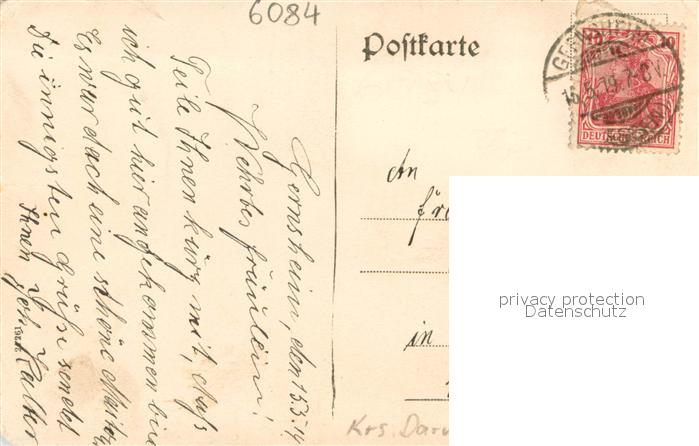 6084
Postkarte
10 10
GERNSHEIM
15.5.19. 7-8V.
DEUTSCHES REICH
Gernsheim, den 15.5.19
Wehrtes Fräulein!
Teile Ihnen kurz mit, daß
ich gut hier angekommen bin
Es war doch eine schöne
Die innigsten Grüße sendet
Ihnen
An
in
Krs. Darm
privacy protection
Datenschutz